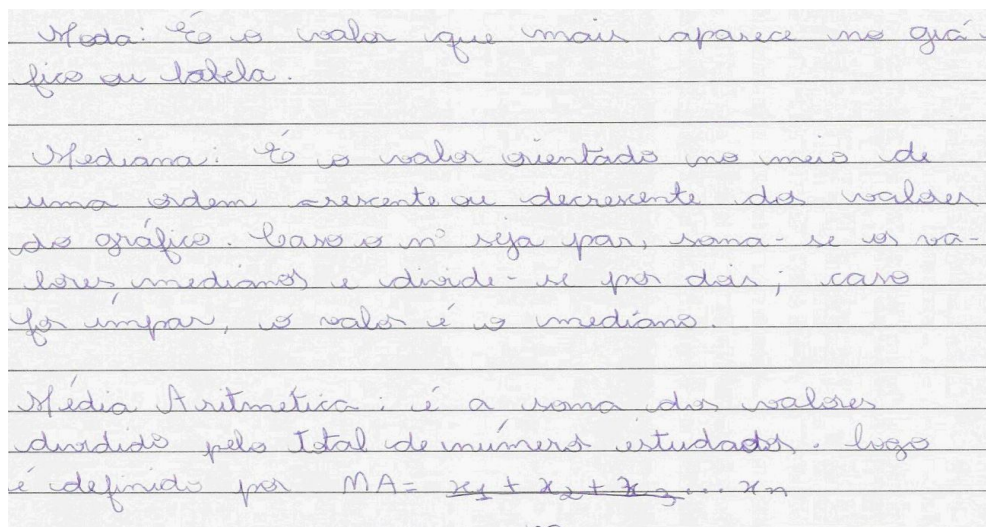 Moda: É o valor que mais aparece no grá-
fico ou tabela.
Mediana: É o valor orientado no meio de
uma ordem crescente ou decrescente dos valores
do gráfico. Caso o nº seja par, soma-se os va-
lores medianos e divide-se por dois; caso
for ímpar, o valor é o mediano.
Média Aritmética: é a soma dos valores
dividido pelo total de números estudados. Logo
é definido por MA= x1 + x2 + x3 ... xn